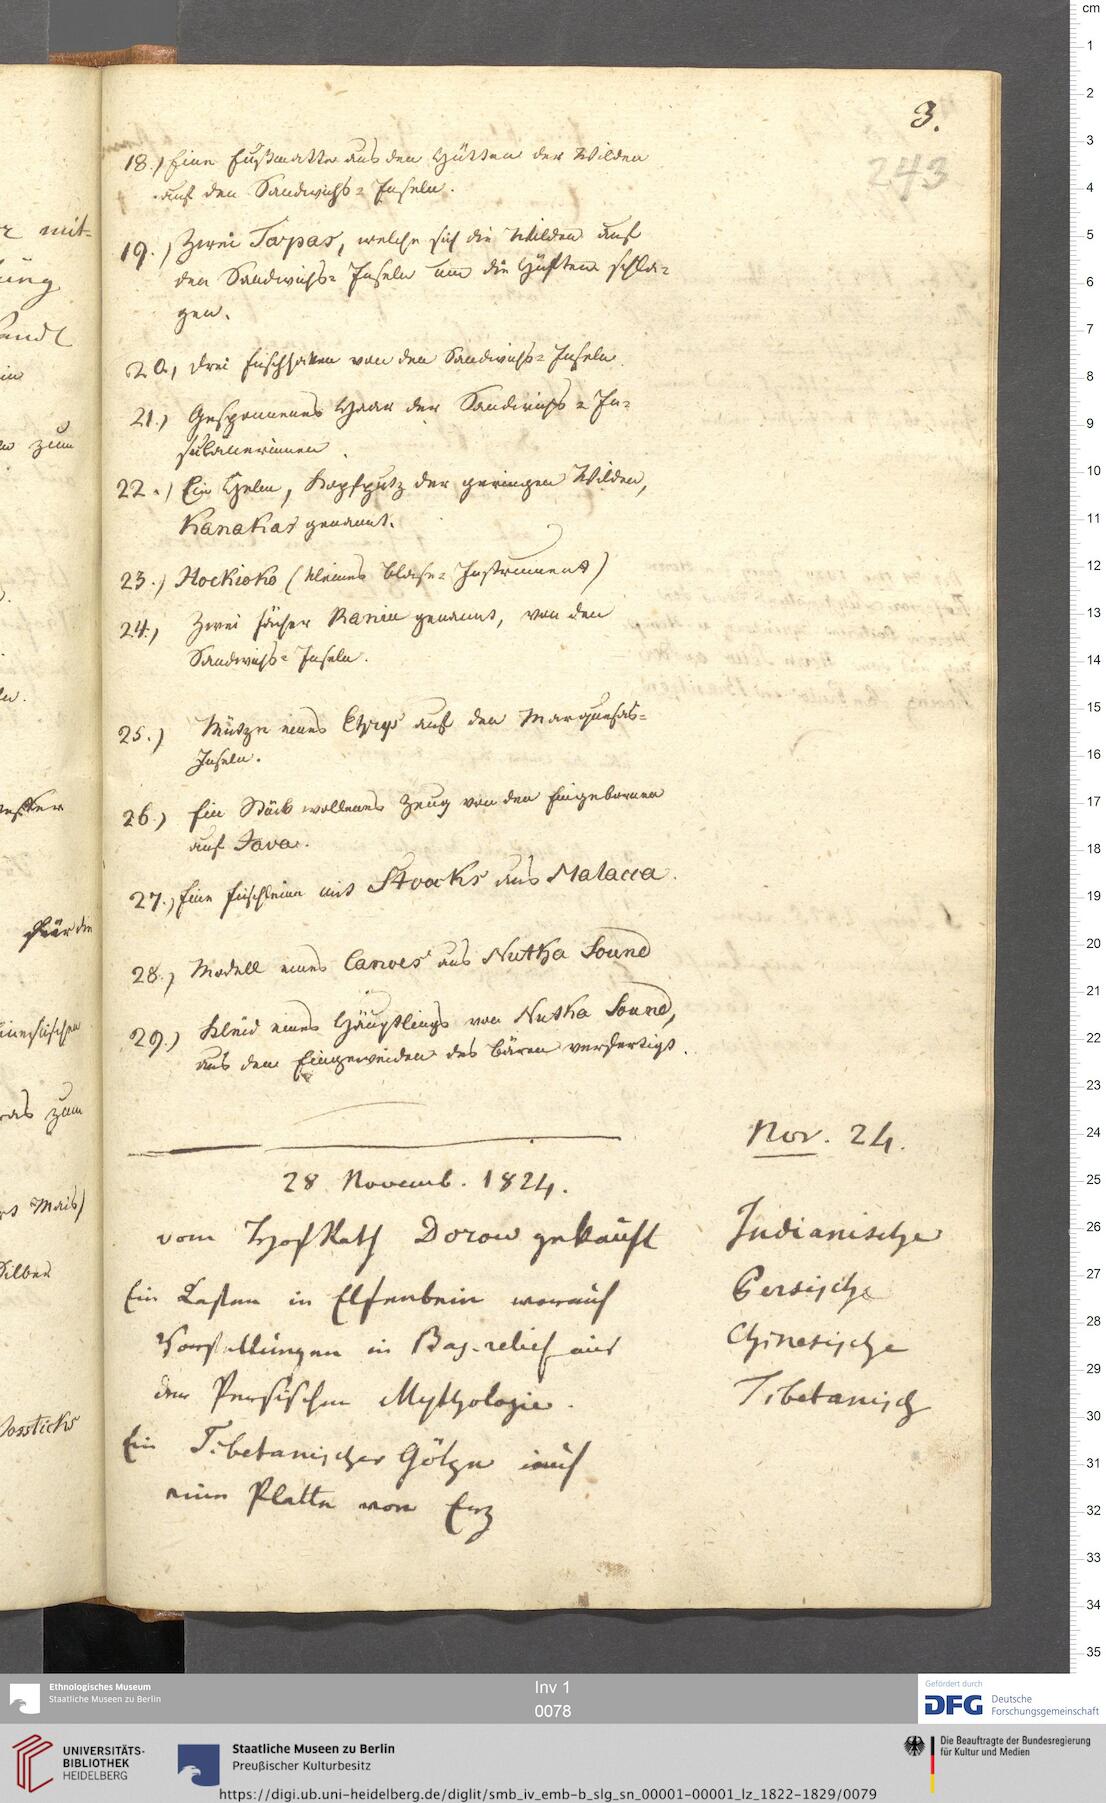 3.
243
18.) Eine Fußmatte aus den Hütten der Wilden
auf den Sandwichs-Inseln.
19.) Zwei Tapas, welche sich die Wilden auf
den Sandwichs-Inseln um die Hüften schla-
gen.
20.) Drei Fischhaken von den Sandwichs-Inseln
21.) Gesponnenes Haar der Sandwichs-In-
sulanerinnen.
22.) Ein Helm, Kopfputz der geringen Wilden,
Kanakas genannt.
23.) Hockioko (kleines Blase-Instrument)
24.) Zwei Fächer genannt, von den
Sandwichs-Inseln.
25.) Mütze eines auf den Marquesas-
Inseln.
26.) Ein Stück wollenes Zeug von den Eingebornen
auf Java.
27.) Eine Fischleine mit aus Malacca.
28.) Modell eines Canoes aus Nutka Sound
29.) Kleid eines Häuptlings von Nutka Sound,
aus den Eingeweiden des Bären verfertigt.
Nov. 24.
28 Novemb. 1824.
vom HofRath Dorow gekauft
Ein Kasten in Elfenbein worauf
Vorstellungen in Bas-relief aus
der Persischen Mythologie.
Ein Tibetanischer Götze auf
einer Platte von Erz
Indianische
Persische
Chinesische
Tibetanisch
mit-
zum
für die
Mais)
Silber
Jossticks
cm
1
2
3
4
5
6
7
8
9
10
11
12
13
14
15
16
17
18
19
20
21
22
23
24
25
26
27
28
29
30
31
32
33
34
35
Ethnologisches Museum
Staatliche Museen zu Berlin
Inv 1
0078
Gefördert durch
DFG
Deutsche
Forschungsgemeinschaft
UNIVERSITÄTS-
BIBLIOTHEK
HEIDELBERG
Staatliche Museen zu Berlin
Preußischer Kulturbesitz
Die Beauftragte der Bundesregierung
für Kultur und Medien
https://digi.ub.uni-heidelberg.de/diglit/smb_iv_emb-b_slg_sn_00001-00001_lz_1822-1829/0079